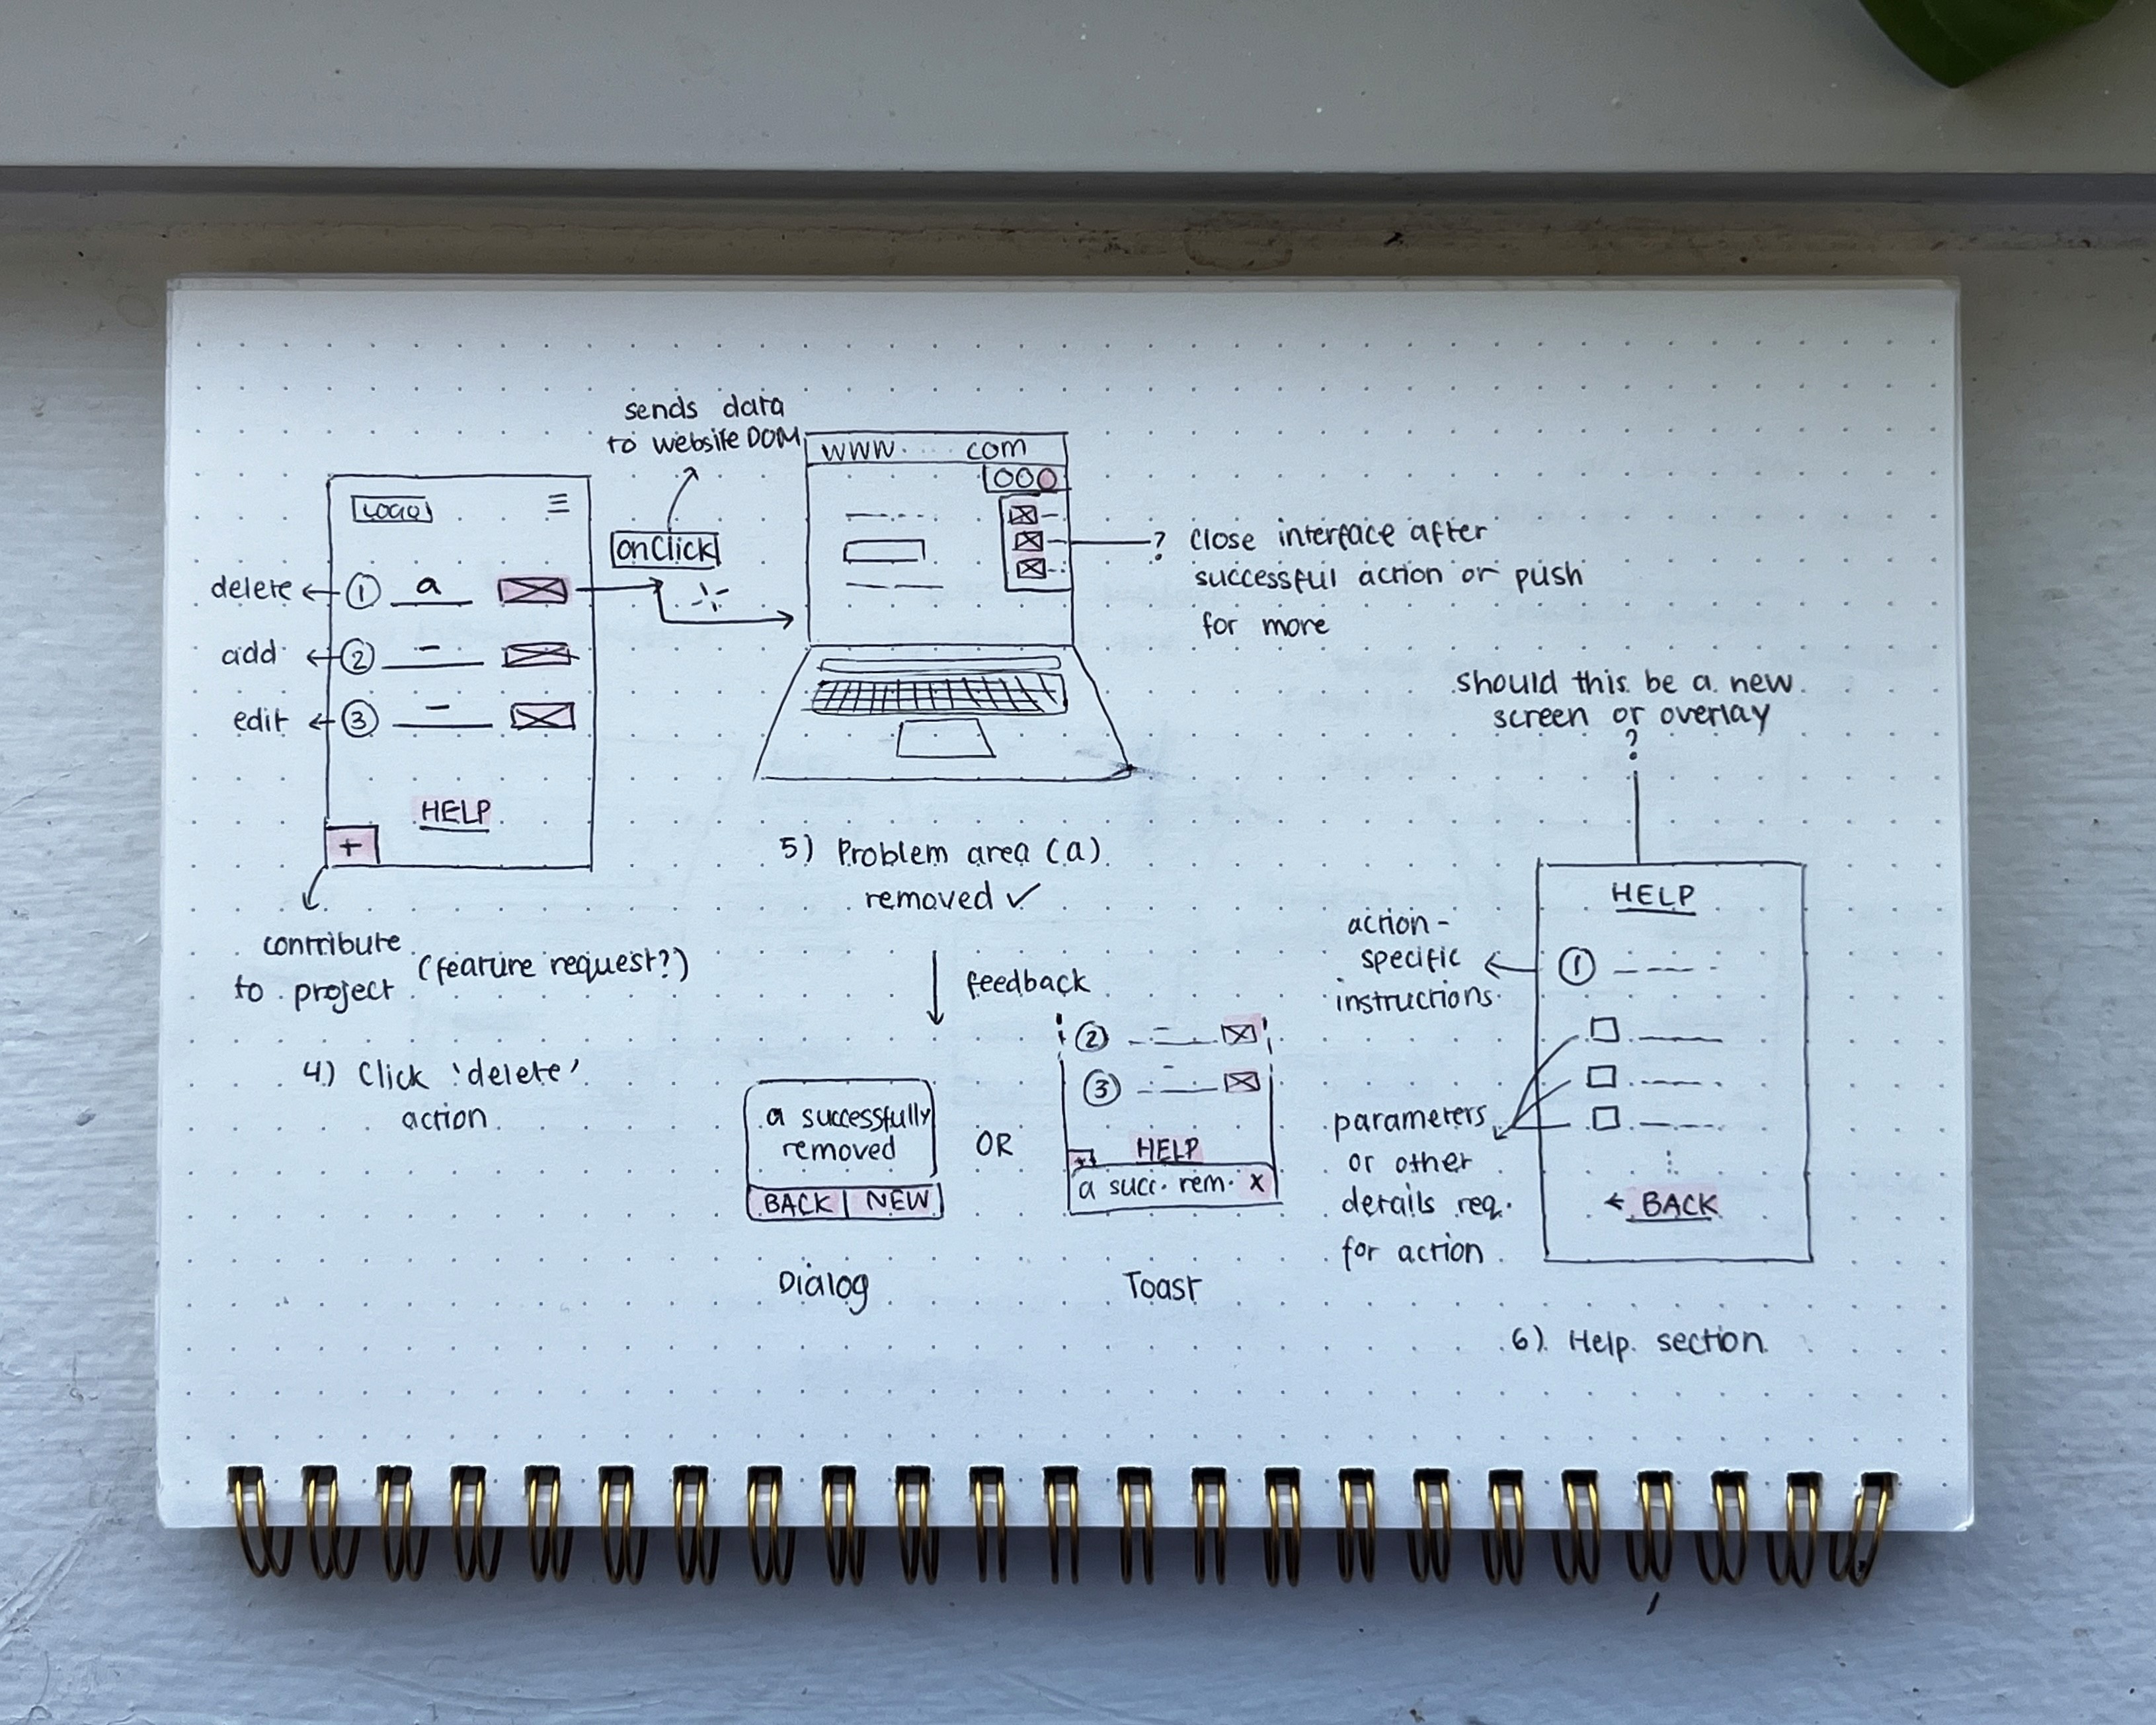 sends data
to website DOM
LOGO
delete
1
a
add
2
edit
3
HELP
+
contribute
to project
(feature request?)
4) Click 'delete'
action
onClick
www. com
? close interface after
successful action or push
for more
5) Problem area (a)
removed ✓
feedback
a successfully
removed
BACK | NEW
Dialog
OR
2
3
HELP
+
a succ. rem. x
Toast
should this be a new
screen or overlay
?
HELP
1
← BACK
action-
specific
instructions
parameters
or other
details req.
for action
6) Help section